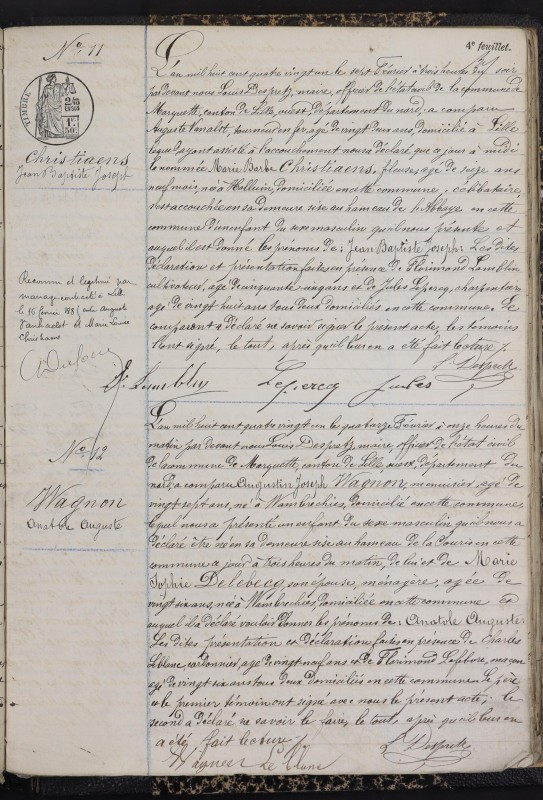 4e feuillet.
No. 11
TIMBRE
Christiaens
Jean Baptiste Joseph
Reconnu et légitimé par
mariage contracté à Lille
le 16 entre auguste
et Marie Louise
Christiaens
L'an mil huit cent quatre vingt un le sept Février à trois heures du soir
par devant nous Louis Despretz, maire, officier de l'état civil de la commune de
Marquette, canton de Lille, ouest, département du nord, a comparu
Auguste âgé de vingt deux ans, domicilié à Lille
lequel ayant assisté à l'accouchement nous a déclaré que ce jour à midi
la nommée Marie Barbe Christiaens, fileuse, agé de seize ans
neuf mois, née à Halluin, domiciliée en cette commune, célibataire,
s'est accouchée en sa demeure sise au hameau de l'Abbaye en cette
commune d'un enfant du sexe masculin qu'il nous présente et
auquel il est donné les prénoms de: Jean Baptiste Joseph: Les dites
déclaration et présentation faites en présence de Florimond Lamblin
cultivateur, agé de cinquante ans et de Jules Lepercq, charpentier
agé de vingt huit ans tous deux domiciliés en cette commune. Le
comparant a déclaré ne savoir signer le présent acte, les témoins
l'ont signé, le tout, après qu'il leur en a été fait lecture /.
L. Despretz
Lamblin Lepercq Jules
No. 12
Wagnon
Anatole Auguste
L'an mil huit cent quatre vingt un le quatorze Février à onze heures du
matin par devant nous Louis Despretz, maire, officier de l'état civil
de la commune de Marquette, canton de Lille, ouest, département du
nord, a comparu Augustin Joseph Wagnon, menuisier, agé de
vingt sept ans, né à Wambrechies, domicilié en cette commune,
lequel nous a présenté un enfant du sexe masculin qu'il nous a
déclaré être né en sa demeure sise au hameau de la en cette
commune ce jour à trois heures du matin, de lui et de Marie
Sophie Delebecq, son épouse, ménagère, agée de
vingt six ans, née à Wambrechies, domiciliée en cette commune et
auquel il a déclaré vouloir donner les prénoms de: Anatole Auguste:
Les dites présentation et déclaration faites en présence de Charles
Leblanc, cordonnier, agé de vingt neuf ans et de Florimond Lefebvre, maçon
agé de vingt six ans tous deux domiciliés en cette commune. Le père
et le premier témoin ont signé avec nous le présent acte; le
second a déclaré ne savoir le faire, le tout, après qu'il leur en
a été fait lecture /.
L. Despretz
Wagnon Le blanc